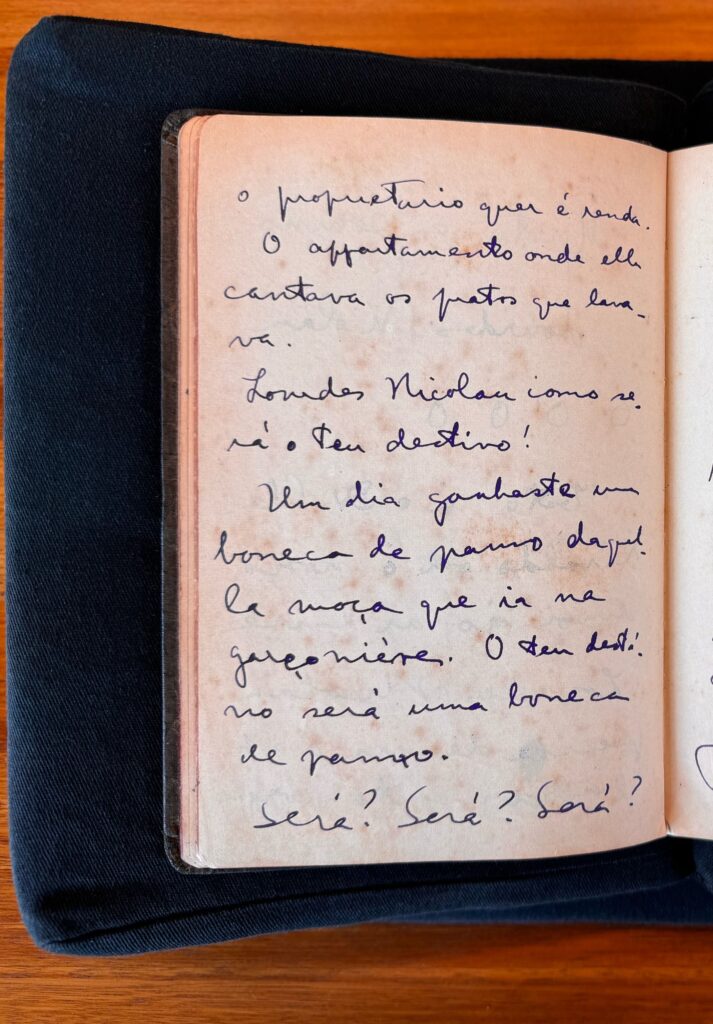 o proprietario quer é renda.
O appartamento onde ella
cantava os pratos que lava-
va.
Lourdes Nicolau como se-
rá o teu destino!
Um dia ganhaste um
boneca de panno daquel-
la moça que ia na
garçonière. O teu desti-
no será uma boneca
de panno.
Será? Será? Será?